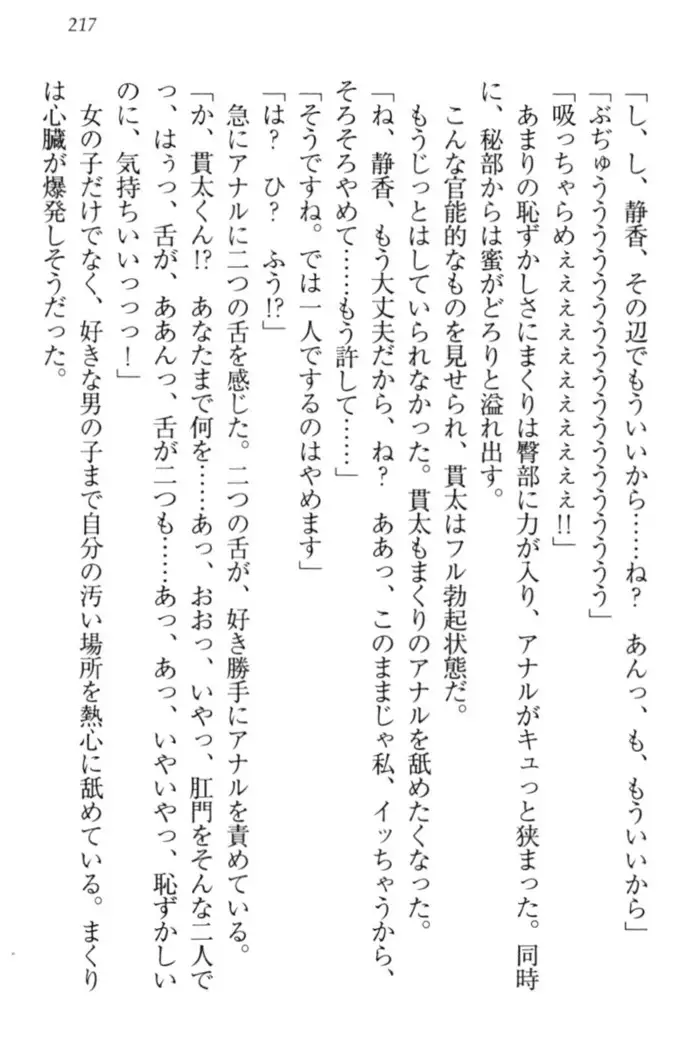 217
「し、し、静香、その辺でもういいから……ね？　あんっ、も、もういいから」
「ぶぢゅうううううううううううううううう」
「吸っちゃらめぇぇぇぇぇぇぇぇぇぇ!!」
　あまりの恥ずかしさにまくりは臀部に力が入り、アナルがキュっと狭まった。同時
に、秘部からは蜜がどろりと溢れ出す。
　こんな官能的なものを見せられ、貫太はフル勃起状態だ。
　もうじっとはしていられなかった。貫太もまくりのアナルを舐めたくなった。
「ね、静香、もう大丈夫だから、ね？　ああっ、このままじゃ私、イッちゃうから、
そろそろやめて……もう許して……」
「そうですね。では一人でするのはやめます」
「は？　ひ？　ふう!?」
　急にアナルに二つの舌を感じた。二つの舌が、好き勝手にアナルを責めている。
「か、貫太くん!?　あなたまで何を……あっ、おおっ、いやっ、肛門をそんな二人で
っ、はぅっ、舌が、ああんっ、舌が二つも……あっ、あっ、いやいやっ、恥ずかしい
のに、気持ちいいっっっ！」
　女の子だけでなく、好きな男の子まで自分の汚い場所を熱心に舐めている。まくり
は心臓が爆発しそうだった。